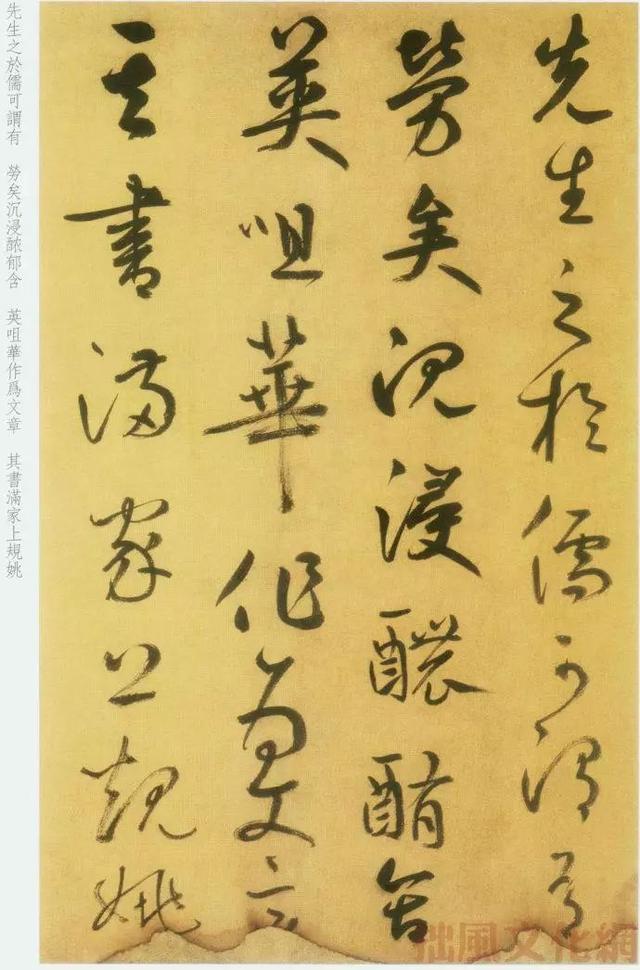 先生之於儒可謂有
勞矣沉浸醲酭含
英咀華作爲文章
其書滿家上規姚
先生之於儒可謂有 勞矣沉浸醲郁含 英咀華作爲文章 其書滿家上規姚
拙風文化網